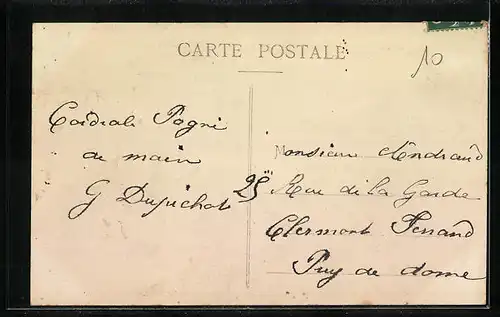 CARTE POSTALE
10
Cordiale Pogné
de main
G Dujuchot
Monsieur Andraud
25 Rue de la Garde
Clermont Ferrand
Puy de dome